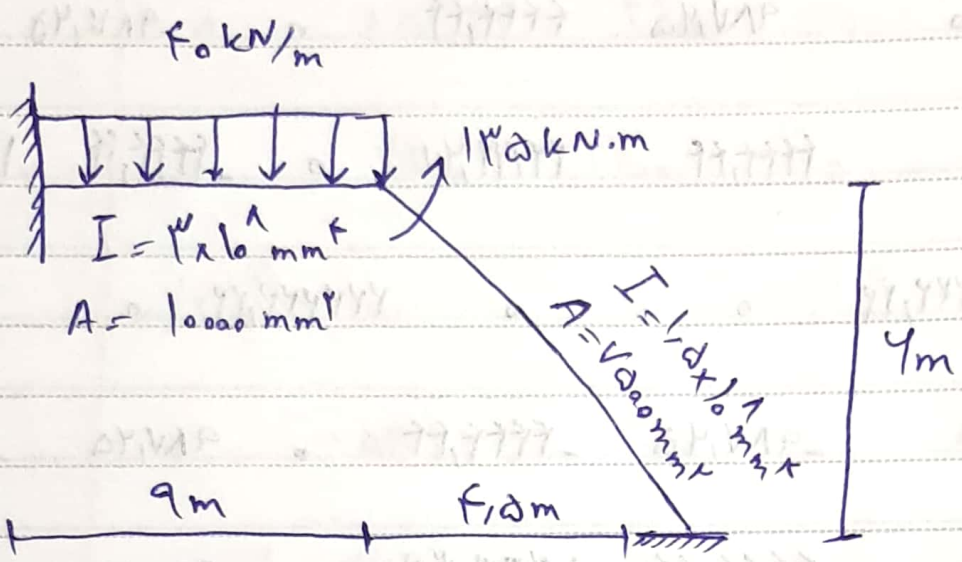 ۴۰ kN/m
۱۳۵ kN.m
I = ۳×۱۰^۸ mm^۴
A = ۱۰۰۰۰ mm^۲
I = ۱,۵×۱۰^۸ mm^۴
A = ۷۵۰۰ mm^۲
۶m
۹m
۴,۵m